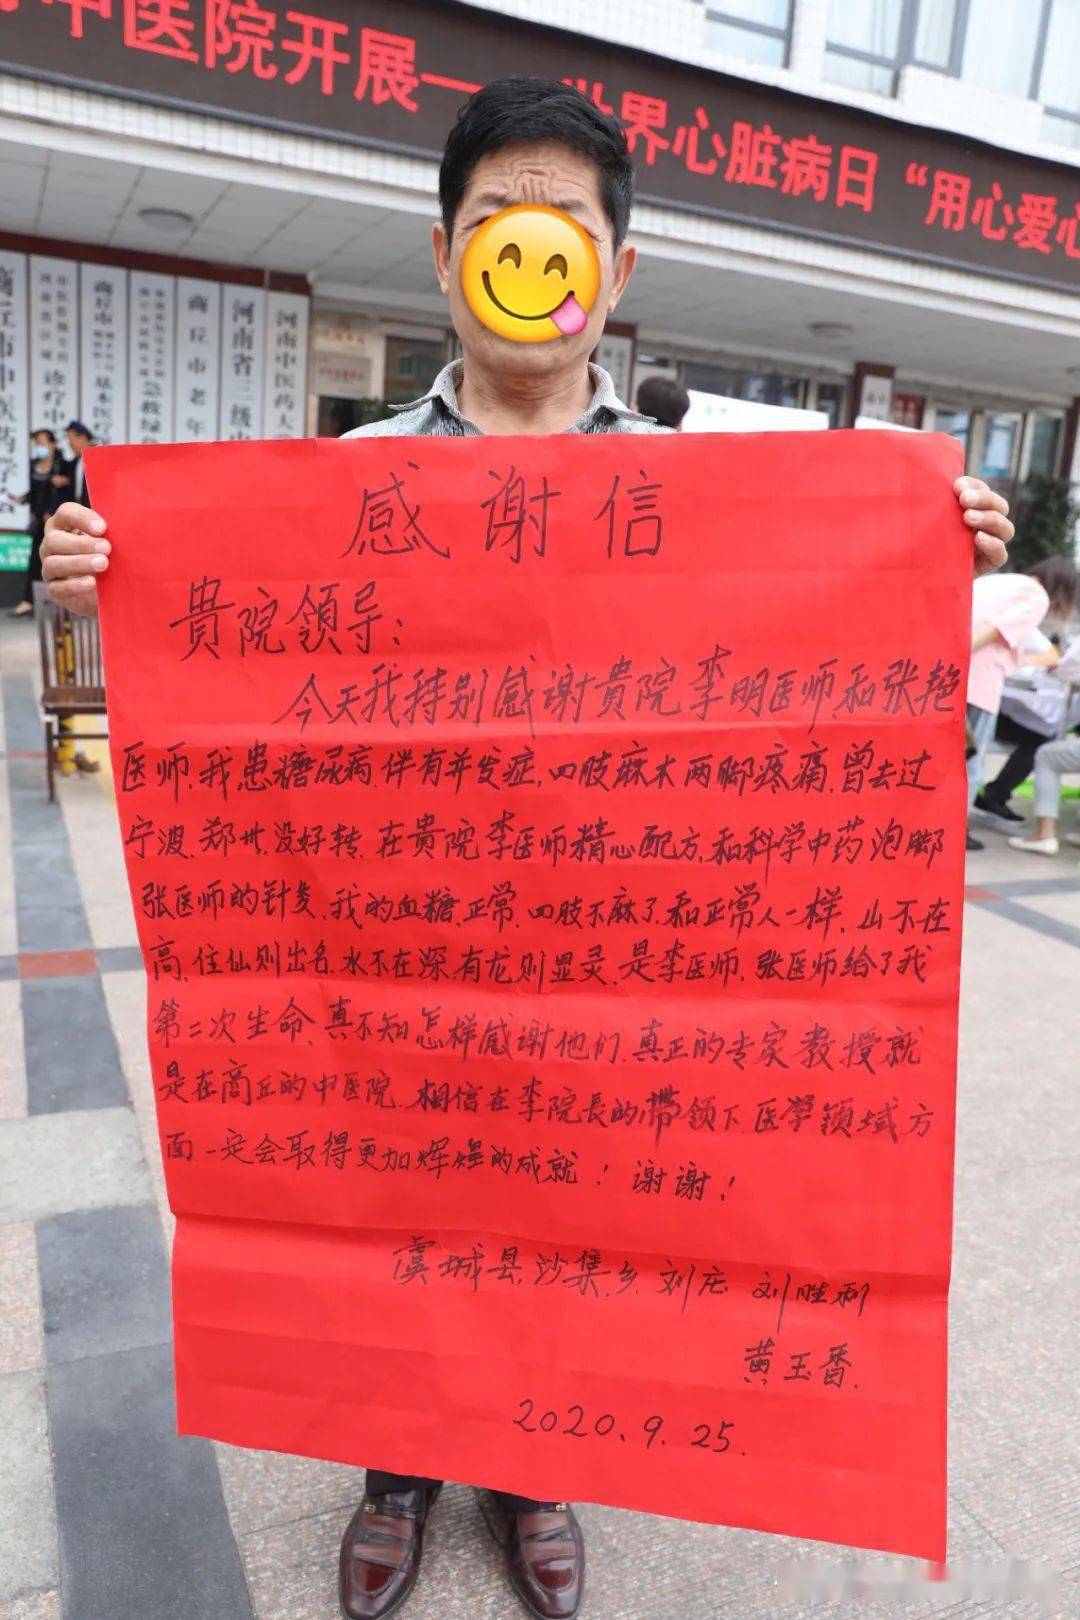 中医院开展
世界心脏病日“用心爱心
商丘市中医药学会
诊疗中
基本医疗
急救绿
商丘市老年
河南省三级中
河南中医药大
感谢信
貴院领导：
今天我特别感谢貴院李明医师和张艳
医师,我患糖尿病.伴有并发症,四肢麻木两脚疼痛,曾去过
宁波,郑州,没好转,在貴院李医师精心配方,和科学中药泡脚
张医师的针灸,我的血糖,正常,四肢不麻了,和正常人一样,山不在
高,住仙则出名,水不在深,有龙则显灵,是李医师,张医师给了我
第二次生命,真不知怎样感谢他们,真正的专家教授就
是在商丘的中医院,相信在李院長的带领下,医学领域方
面,一定会取得更加辉煌的成就！谢谢！
虞城县,沙集乡 刘庄 刘胜利
黄玉香.
2020.9.25.